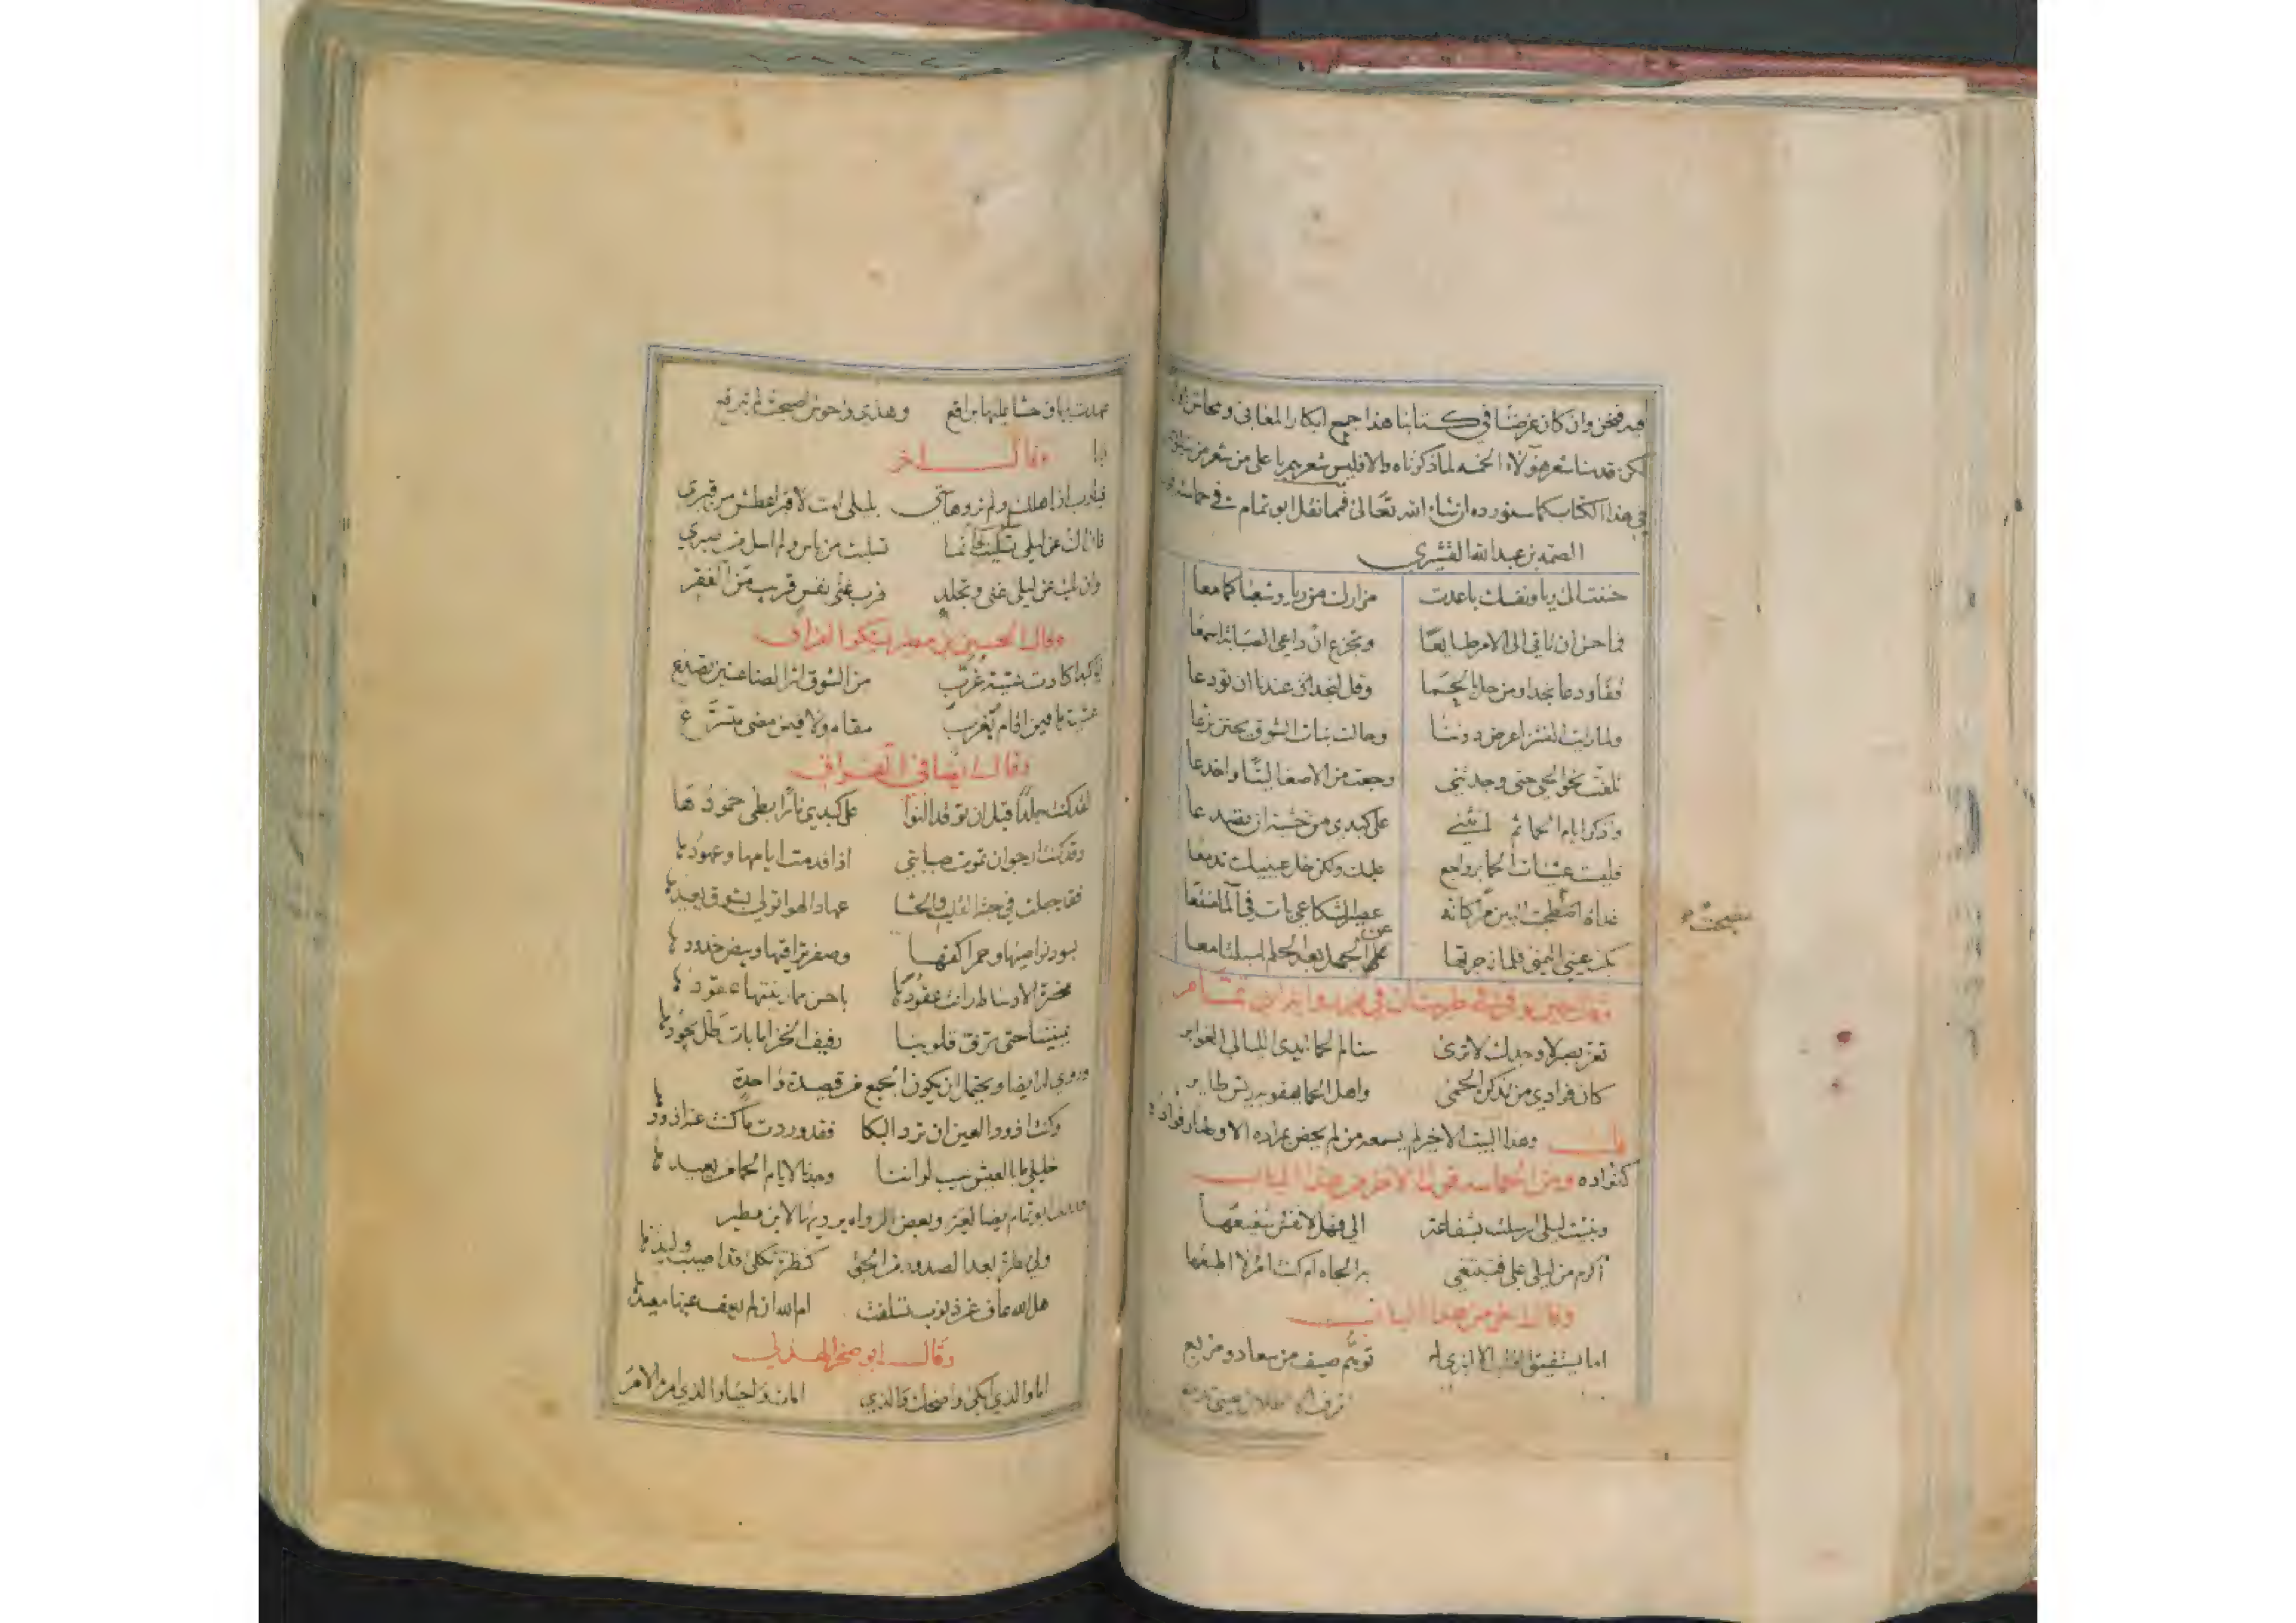 فيه فنحن وان كان غرضنا في كتابنا هذا جمع ابكار المعاني ومحاسن
لكن قدمنا شعر هؤلاء الخمسه لما ذكرناه والا فليس شعرهم باعلى من شعر من
في هذا الكتاب كما سنورده ان شاء الله تعالى فما نقل ابو تمام في حماسته
الصمة بن عبد الله القشيري
حننت الى ريا ونفسك باعدت مزارك من ريا وشعباكما معا
فما حسن ان تاتي الامر طايعا وتجزع ان داعي الصبابة اسمعا
قفا ودعا نجدا ومن حل بالحما وقل لنجد عندنا ان تودعا
ولما رايت البشر اعرض دوننا وحالت بنات الشوق يحنن نزعا
تلفت نحو الحي حتى وجدتني وجعت من الاصغا ليتا واخدعا
واذكر ايام الحما ثم انثني على كبدي من خشية ان تصدعا
فليت عشيات الحما برواجع عليك ولكن خل عينيك تدمعا
غداة
بكت عيني اليمنى فلما زجرتها عن الجهل بعد الحلم اسبلتا معا
تعز بصبر لا وجدك لا ترى سنام الحما احدى الليالي الغوابر
كان فوادي من تذكره الحمى واهل الحما يهفو به ريش طاير
وهذا البيت الاخير لم يسمعه من لم يحض مراده الا وطار فواده
كفواده ومن الحماسه قول الاخر من هذا الباب
ونبئت ليلى ارسلت بشفاعة الي فهلا نفس ليلى شفيعها
أأكرم من ليلى علي فتبتغي به الجاه ام كنت امرأ لا اطيعها
وقال اخر من هذا الباب
اما يستفيق القلب الا انبرى له توهم صيف من سعاد ومربع
وهذي وحوش اصبحت لم تبرقع
وقال اخر
فيا رب ان اهلك ولم ترو هامتي بليلى امت لا قبر اعطش من قبري
فان اك عن ليلى سلوت فانما تسليت عن ياس ولم اسل من صبري
وان يك عن ليلى غنى وتجلد فرب غنى نفس قريب من الفقر
وقال الحسين بن مطير يشكو الفراق
ايا كبدا كادت عشية غرب من الشوق اثر الظاعنين تصدع
عشية ما فيمن اقام بغرب مقام ولا فيمن مضى متسرع
وقال ايضا في الفراق
لقد كنت جلدا قبل ان توقد النوا على كبدي نارا بطى خمودها
وقد كنت ارجو ان تموت صبابتي اذا قدمت ايامها وعهودها
فقد جعلت في حبة القلب والحشا عهاد الهوا تولى بشوق يعيدها
بسود نواصيها وحمر اكفها وصفر تراقيها وبيض خدودها
مخصرة الاوساط زانت عقودها باحسن مما زينتها عقودها
يمنيننا حتى ترف قلوبنا رفيف الخزاما بات طل يجودها
وروي له ايضا ويحتمل ان يكون الجميع من قصيدة واحدة
وكنت اذود العين ان ترد البكا فقد وردت ما كنت عنه اذودها
خليلي ما بالعيش عيب لو اننا وجدنا لايام الحما من يعيدها
ابو تمام ايضا لغيره وبعض الرواه يرويها لابن مطير
ولي نظرة بعد الصدود من الجوى كنظرة ثكلى قد اصيب وليدها
هل الله عاف عن ذنوب تسلفت ام الله ان لم يعف عنها معيدها
وقال ابو صخر الهذلي
اما والذي ابكى واضحك والذي امات واحيا والذي امره الامر